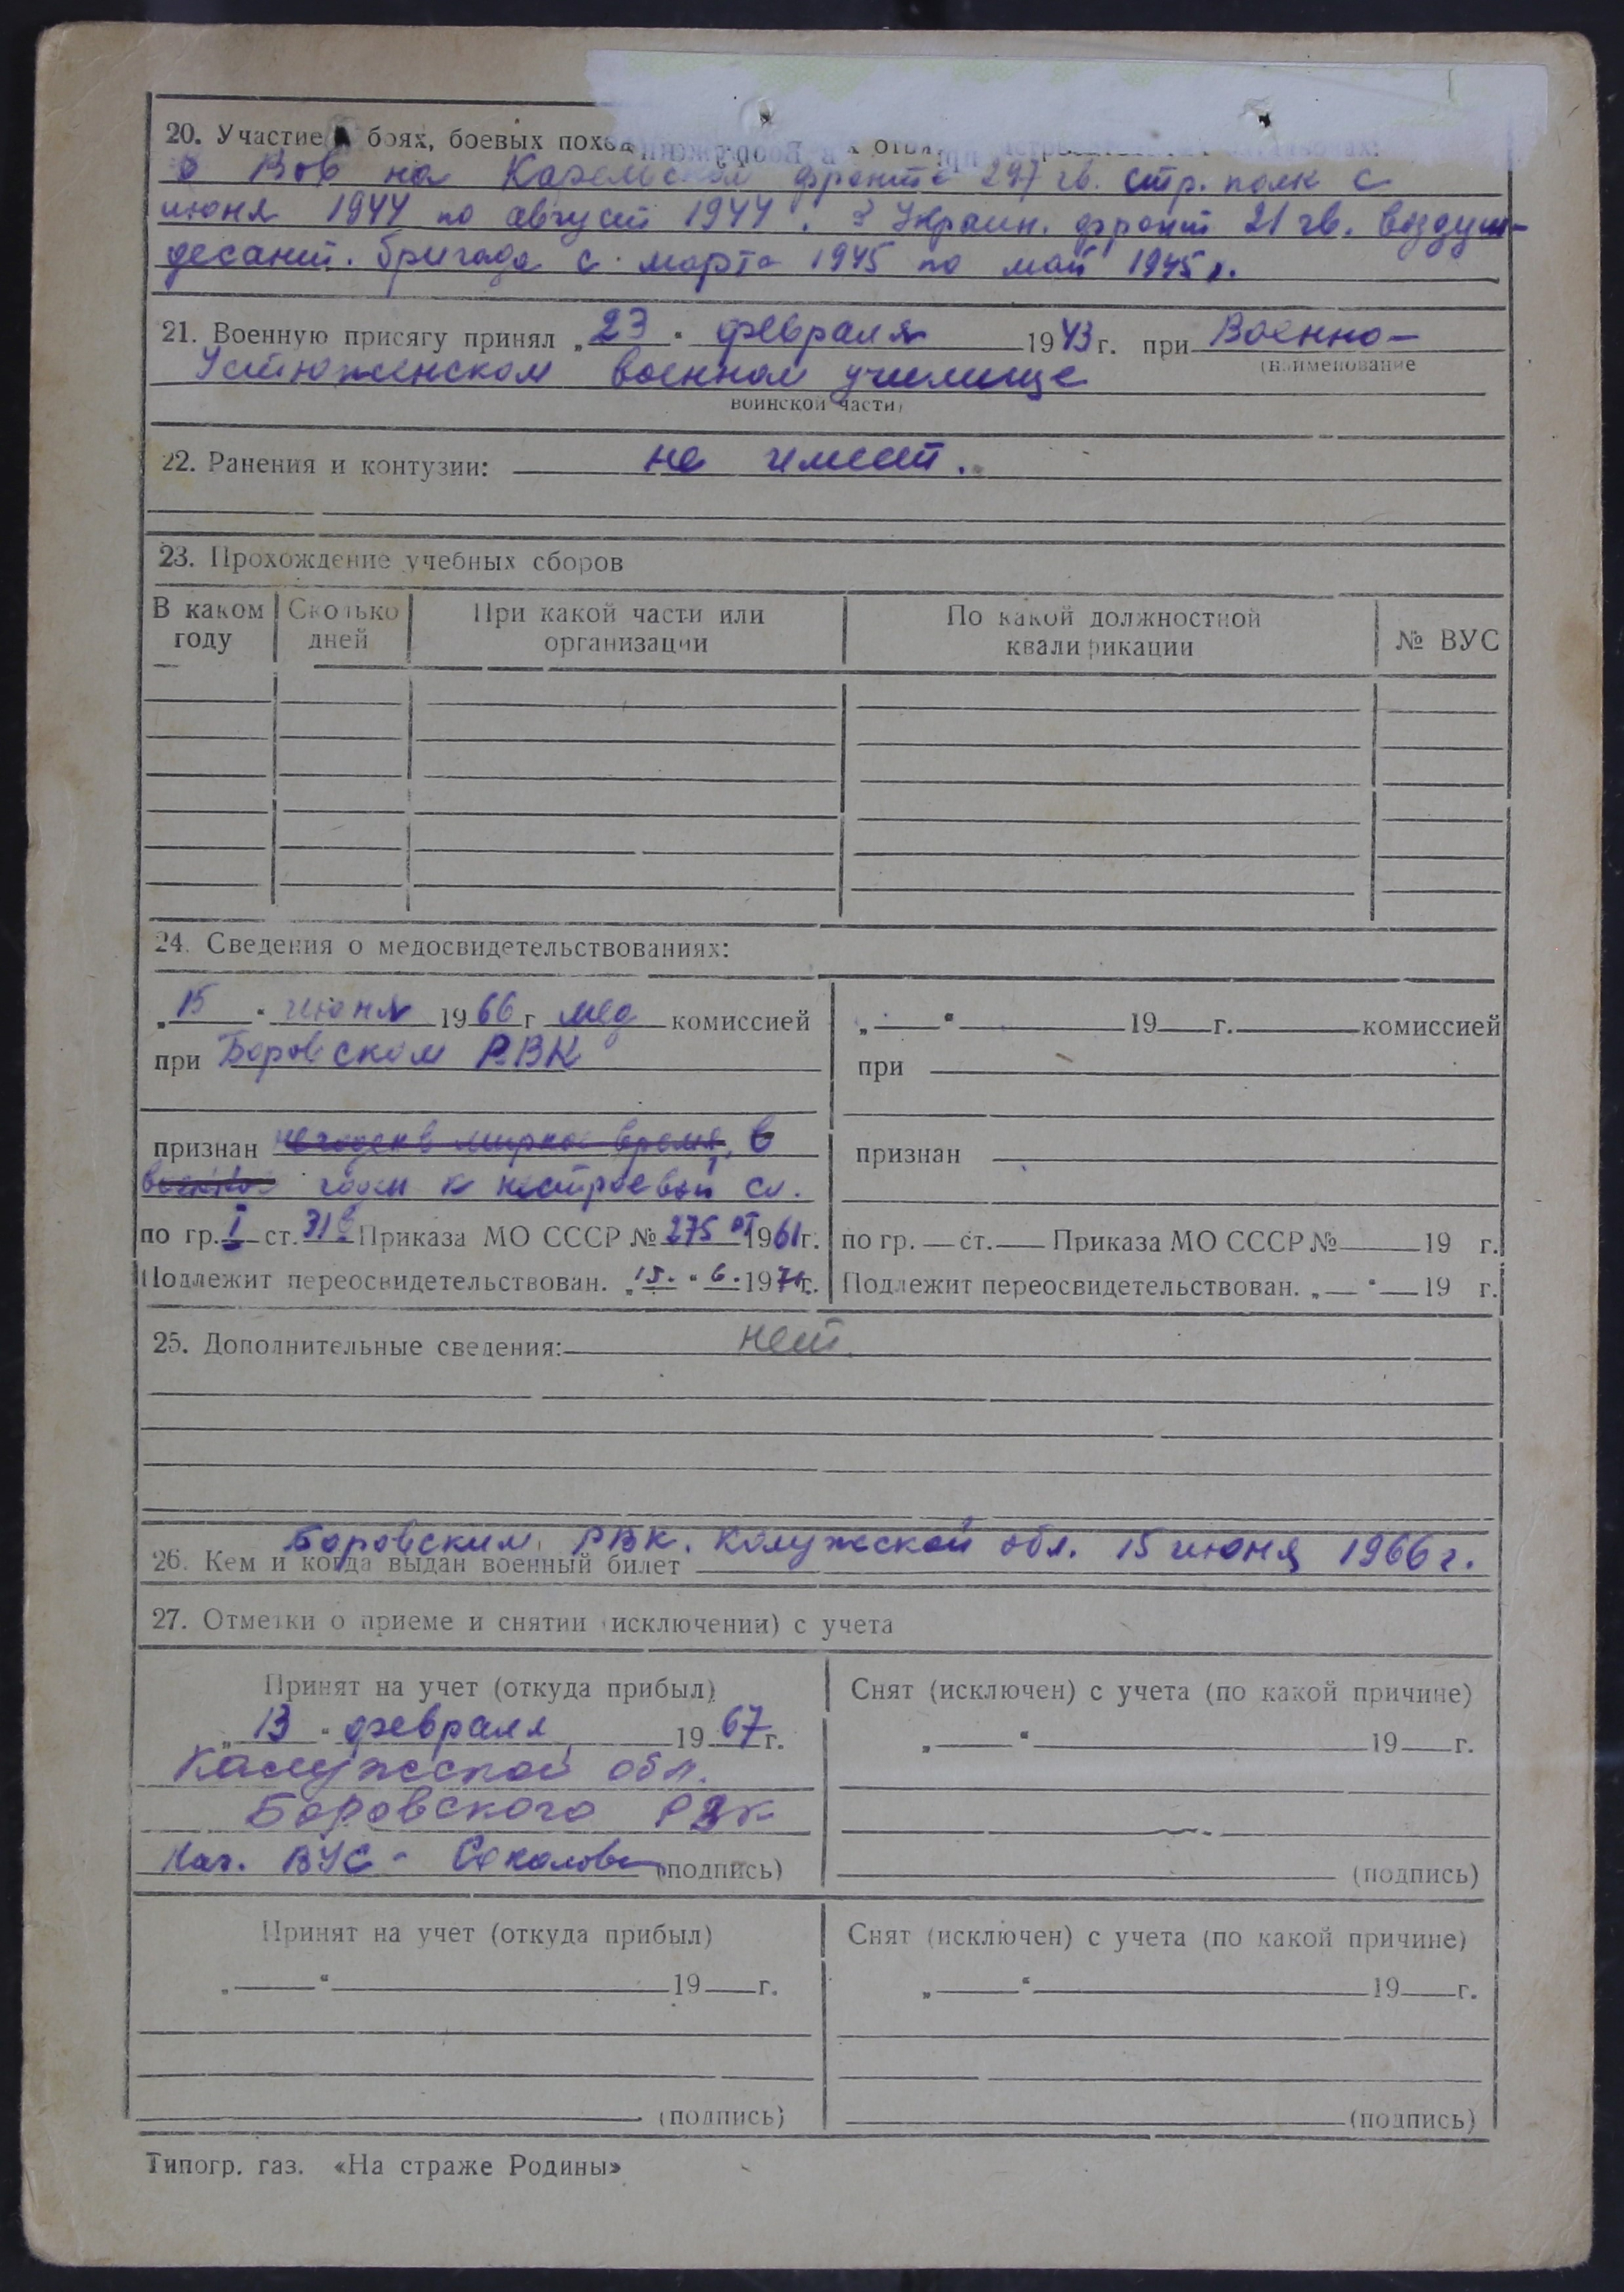 20. Участие в боях, боевых
в Вов на Карельском фронте 297 гв. стр. полк с
июня 1944 по август 1944. 3 Украин. фронт 21 гв. воздуш-
десант. бригада с марта 1945 по май 1945 г.
21. Военную присягу принял „23" февраля 1943 г. при Военно-
(наименование
Устюженском военном училище
воинской части)
22. Ранения и контузии: не имеет.
23. Прохождение учебных сборов
В каком году | Сколько дней | При какой части или организации | По какой должностной квалификации | № ВУС
24. Сведения о медосвидетельствованиях:
„15" июня 1966 г мед комиссией
при Боровском РВК
признан негоден в мирное время, в
военное годен к нестроевой сл.
по гр. I ст. 31б Приказа МО СССР № 275 от 1961 г.
Подлежит переосвидетельствован. „15." 6. 1971 г.
„ " 19 г. комиссией
при
признан
по гр. ст. Приказа МО СССР № 19 г.
Подлежит переосвидетельствован. „ " 19 г.
25. Дополнительные сведения: нет.
Боровским РВК. Калужской обл. 15 июня 1966 г.
26. Кем и когда выдан военный билет
27. Отметки о приеме и снятии (исключении) с учета
Принят на учет (откуда прибыл)
„13" февраля 1967 г.
Калужской обл.
Боровского РВК
Нач. ВУС - Соколова (подпись)
Снят (исключен) с учета (по какой причине)
„ " 19 г.
(подпись)
Принят на учет (откуда прибыл)
„ " 19 г.
(подпись)
Снят (исключен) с учета (по какой причине)
„ " 19 г.
(подпись)
Типогр. газ. «На страже Родины»